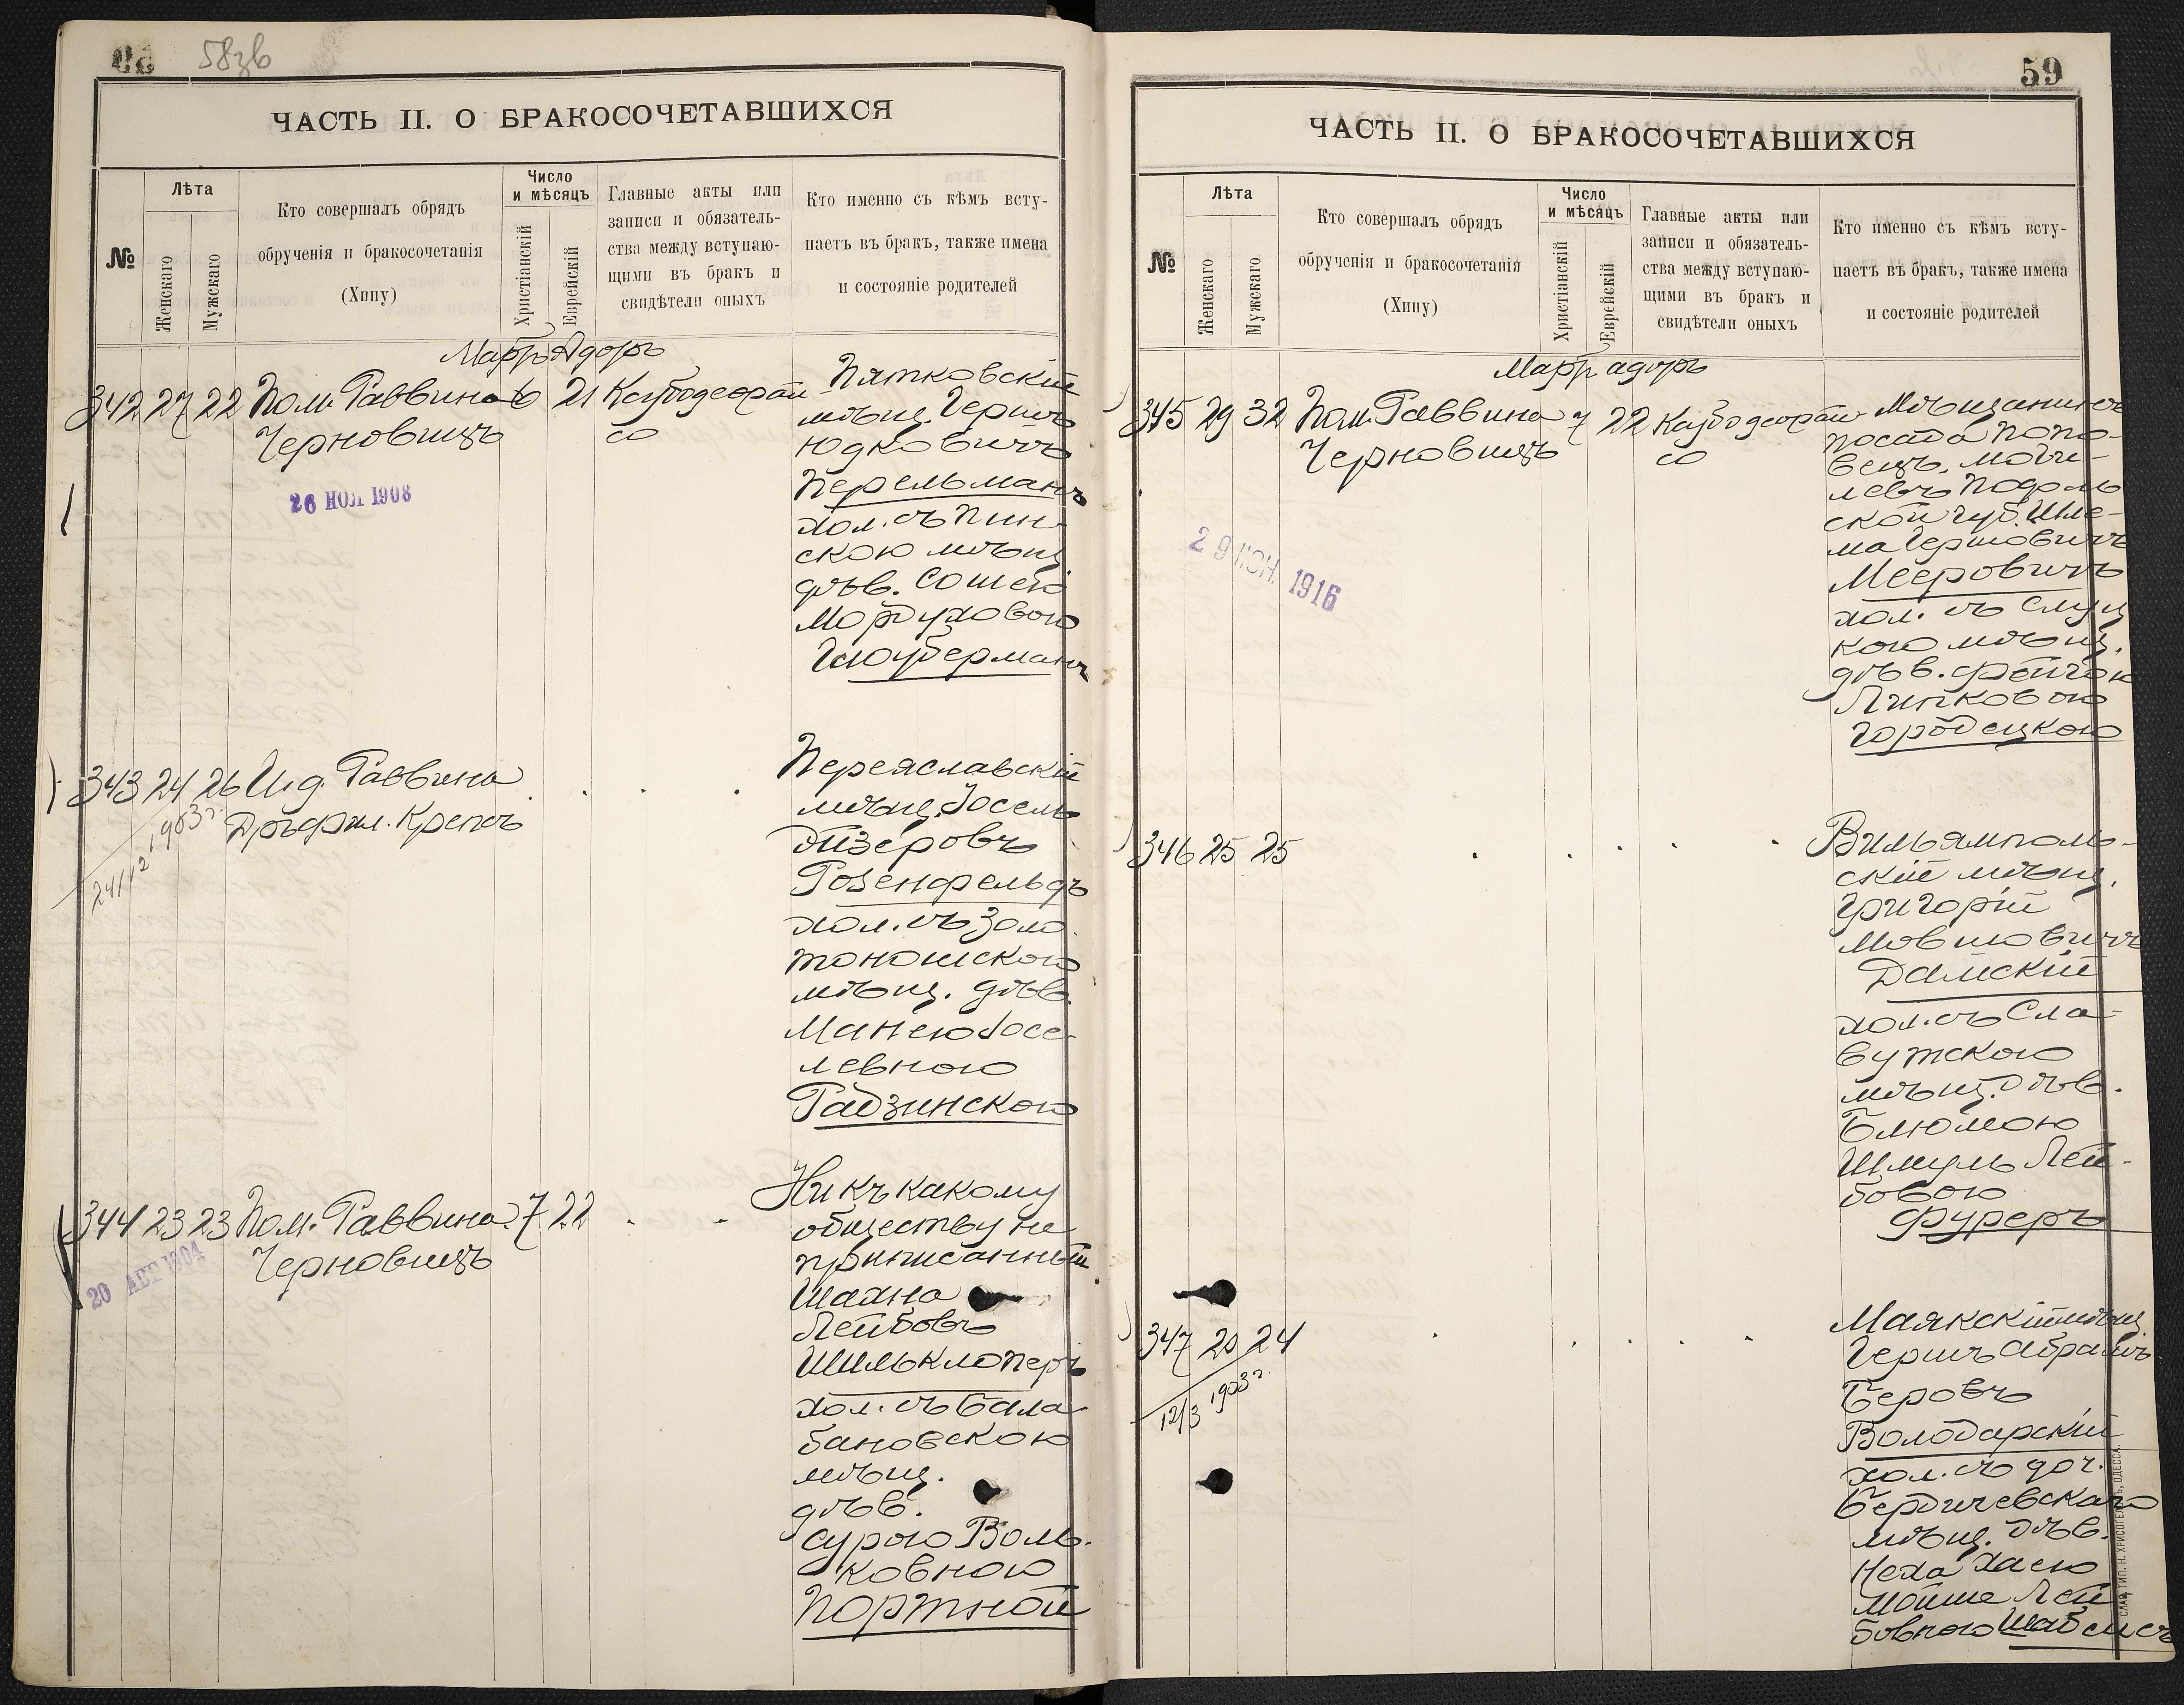 58зв
ЧАСТЬ II. О БРАКОСОЧЕТАВШИХСЯ
№
Лѣта
Женскаго
Мужскаго
Кто совершалъ обрядъ
обрученія и бракосочетанія
(Хипу)
Число
и мѣсяцъ
Христіанскій
Еврейскій
Главные акты или
записи и обязатель-
ства между вступаю-
щими въ бракъ и
свидѣтели оныхъ
Кто именно съ кѣмъ всту-
паетъ въ бракъ, также имена
и состояніе родителей
Мартъ Адоръ
342 27 22 Пом. Раввина 6 21
Черновицъ
26 НОЯ 1908
Пятковскій
мѣщ. Гершъ
Юдковичъ
Перельманъ
хол. съ Пин-
скою мѣщ
дѣв.
Мордуховою
343 24 26 И.д. Раввина
Дръфил. Крепсъ
24/12 1903 г.
Переяславскій
мѣщ. Іосель
Розенфельдъ
хол. съ Золо-
тоношскою
мѣщ. дѣв.
Манею Іосе-
левною
Радзинскою
344 23 23 Пом. Раввина 7 22
Черновицъ
20 АПР 1904
Ни къ какому
обществу не
приписанный
Шахна
Лейбовъ
Шилькloперъ
хол. съ Бала-
бановскою
мѣщ.
дѣв.
Сурою Воль-
ковною
Портной
59
ЧАСТЬ II. О БРАКОСОЧЕТАВШИХСЯ
№
Лѣта
Женскаго
Мужскаго
Кто совершалъ обрядъ
обрученія и бракосочетанія
(Хипу)
Число
и мѣсяцъ
Христіанскій
Еврейскій
Главные акты или
записи и обязатель-
ства между вступаю-
щими въ бракъ и
свидѣтели оныхъ
Кто именно съ кѣмъ всту-
паетъ въ бракъ, также имена
и состояніе родителей
Мартъ адоръ
345 29 32 Пом. Раввина 7 22
Черновицъ
29 ІЮН. 1916
Мѣщанинъ
посада Попо-
вецъ, Моги-
левъ Подоль
ской губ. Шле-
ма Гершовичъ
Мееровичъ
хол. съ Слуц
кою мѣщ.
дѣв. Фейгою
Липковою
Городецкою
346 25 25
Вильямполь-
скій мѣщ.
Григорій
Мовшовичъ
Дамскій
хол. съ Сла-
вутскою
мѣщ. дѣв.
Блюмою
Шмуль Лей-
бовою
Фуреръ
347 20 24
12/3 1903 г.
Маякскій мѣщ
Гершъ Абрамъ
Беровъ
Володарскій
хол. съ доч.
Бердичевскаго
мѣщ. дѣв.
Неха Хаею
Мойше Лей
бовною
СЛАВ. ТИП. Н. ХРИСОГЕЛОСЪ, ОДЕССА.